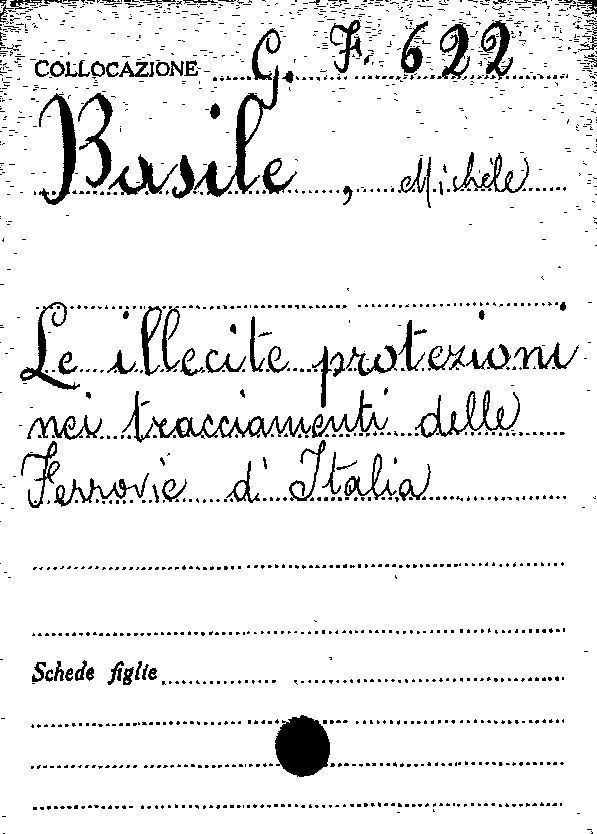 COLLOCAZIONE G. F. 622
Basile, Michele
Le illecite protezioni
nei tracciamenti delle
Ferrovie d'Italia
Schede figlie